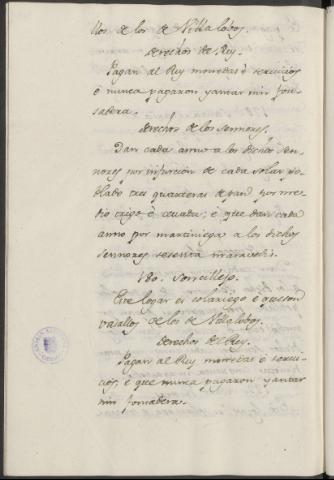 llos de los de Villalobos.
Derechos de Rey.
Pagan al Rey monedas è servicios
è nunca pagaron yantar nin fon-
sadera.
Derechos de los Sennores.
Dan cada anno a los dichos Sen-
nores por infurcion de cada solar po-
blado tres quarteras de pand por me-
dio trigo è cevada; è que dan cada
anno por martiniega a los dichos
Sennores sesenta maravedis.
180. Soncillejo.
Este logar es solariego è que son
vasallos de los de Villalobos.
Derechos del Rey.
Pagan al Rey monedas è servi-
cios, è que nunca pagaron yantar
nin fonsadera.